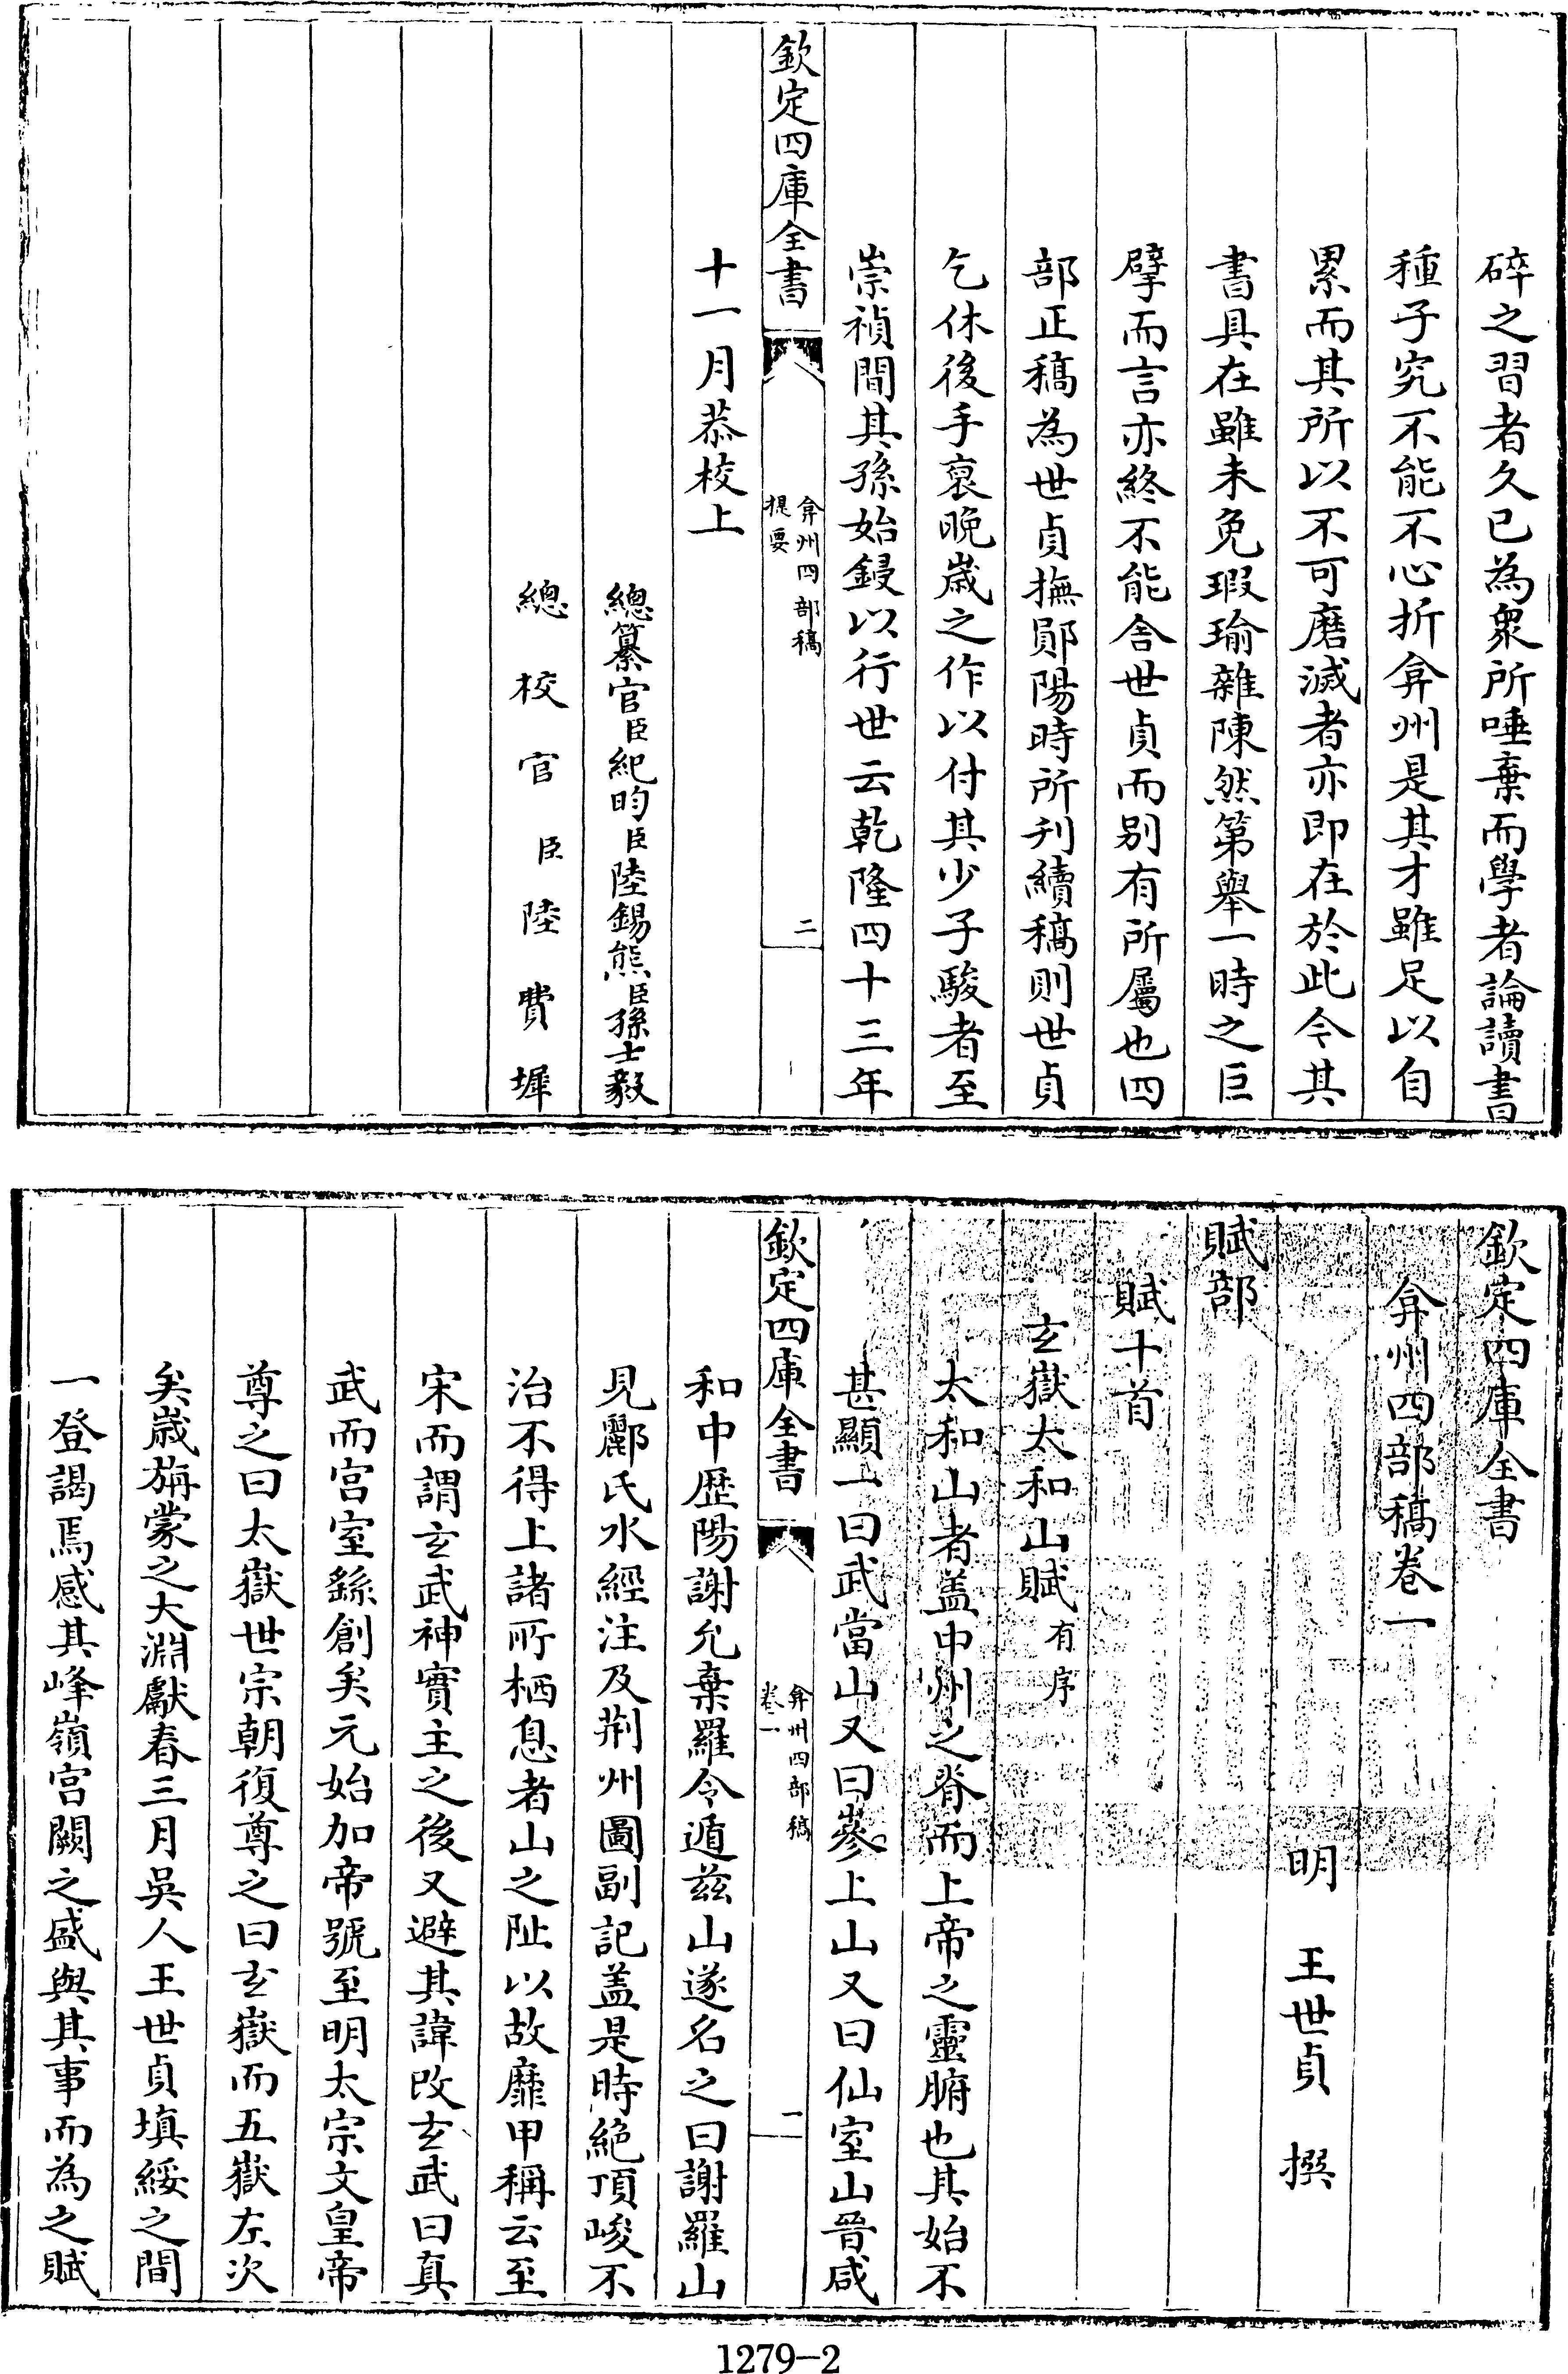 碎之習者久已為衆所唾棄而學者論讀書
種子究不能不心折弇州是其才雖足以自
累而其所以不可磨滅者亦即在於此今其
書具在雖未免瑕瑜雜陳然第舉一時之巨
擘而言亦終不能舍世貞而别有所屬也四
部正稿為世貞撫鄖陽時所刋續稿則世貞
乞休後手裒晚歲之作以付其少子駿者至
崇禎間其孫始鋟以行世云乾隆四十三年
欽定四庫全書
弇州四部稿
提要
二
十一月恭校上
總纂官臣紀昀臣陸錫熊臣孫士毅
總校官臣陸費墀
欽定四庫全書
弇州四部稿卷一
明 王世貞 撰
賦部
賦十首
玄嶽太和山賦有序
太和山者盖中州之脊而上帝之靈腑也其始不
甚顯一曰武當山又曰嵾上山又曰仙室山晉咸
欽定四庫全書
弇州四部稿
卷一
一
和中歴陽謝允棄羅令遁兹山遂名之曰謝羅山
見酈氏水經注及荆州圖副記盖是時絶頂峻不
治不得上諸所栖息者山之阯以故靡甲稱云至
宋而謂玄武神實主之後又避其諱改玄武曰真
武而宫室繇創矣元始加帝號至明太宗文皇帝
尊之曰太嶽世宗朝復尊之曰玄嶽而五嶽左次
矣歲旃蒙之大淵獻春三月吳人王世貞填綏之間
一登謁焉感其峰嶺宫闕之盛與其事而為之賦
1279-2